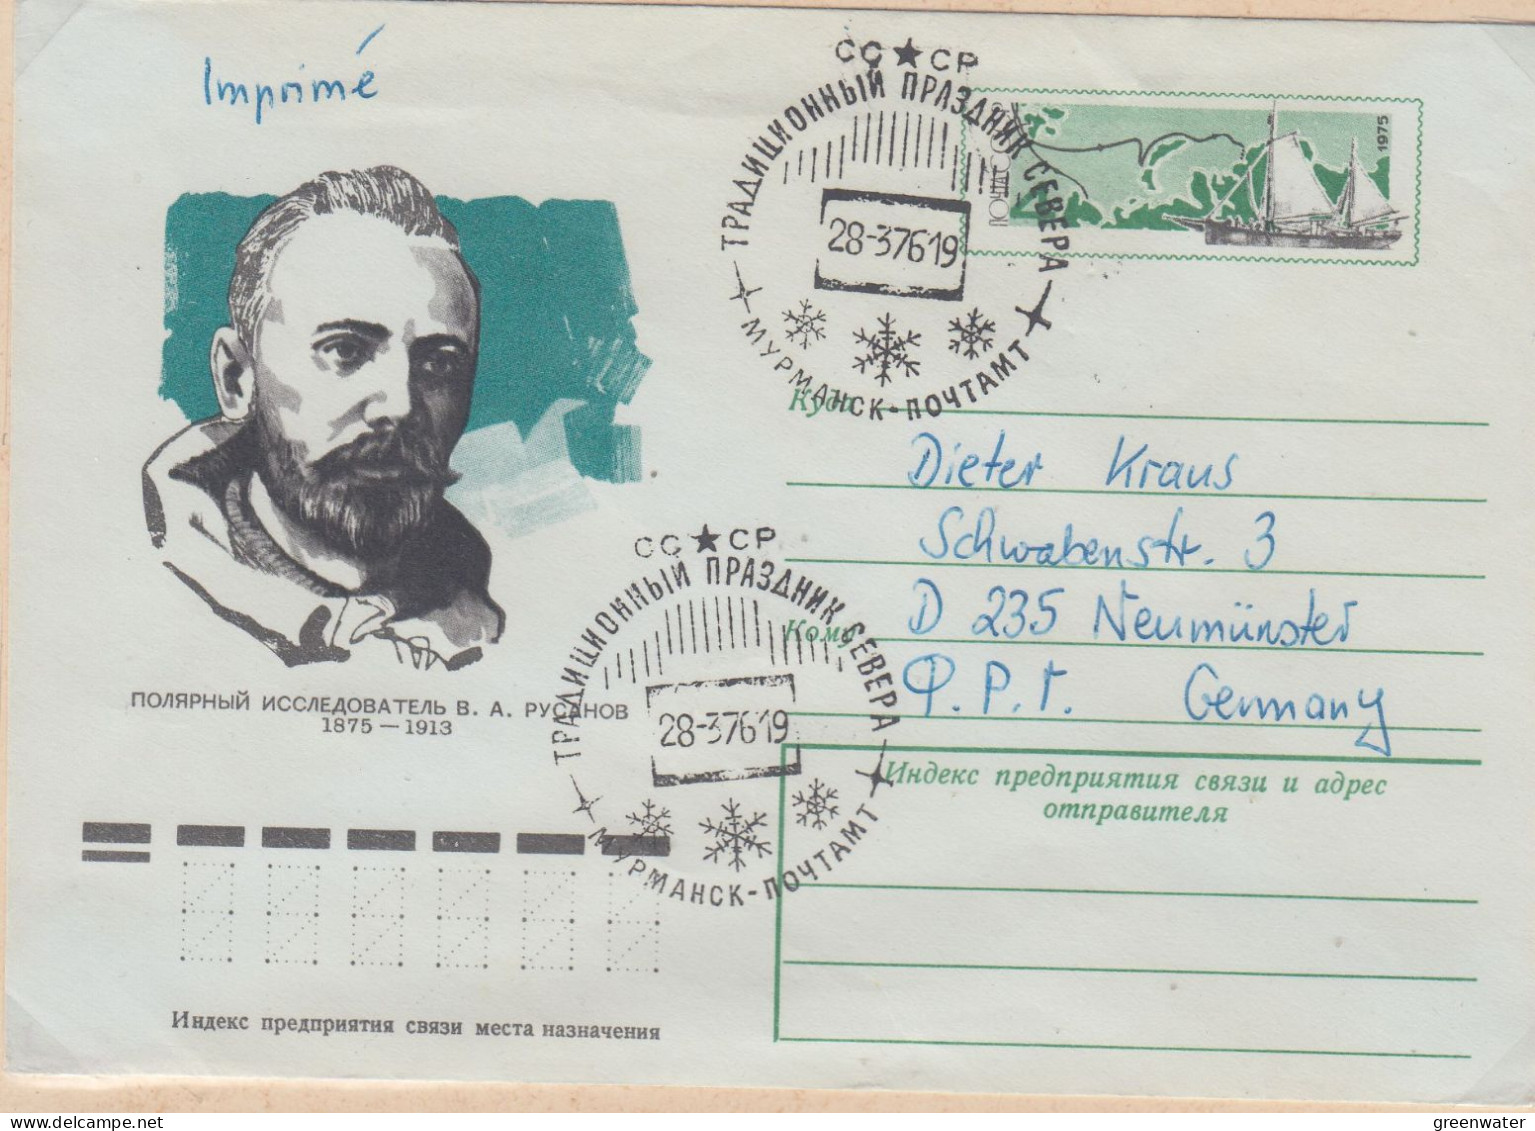 Imprimé
СС★СР
ТРАДИЦИОННЫЙ ПРАЗДНИК СЕВЕРА
28-37619
МУРМАНСК-ПОЧТАМТ
1975
ПОЧТА СССР
Куда
Dieter Kraus
Schwabenstr. 3
D 235 Neumünster
Кому
Ф.Р.Г. Germany
СС★СР
ТРАДИЦИОННЫЙ ПРАЗДНИК СЕВЕРА
28-37619
МУРМАНСК-ПОЧТАМТ
ПОЛЯРНЫЙ ИССЛЕДОВАТЕЛЬ В. А. РУСАНОВ
1875—1913
Индекс предприятия связи и адрес
отправителя
Индекс предприятия связи места назначения
greenwater